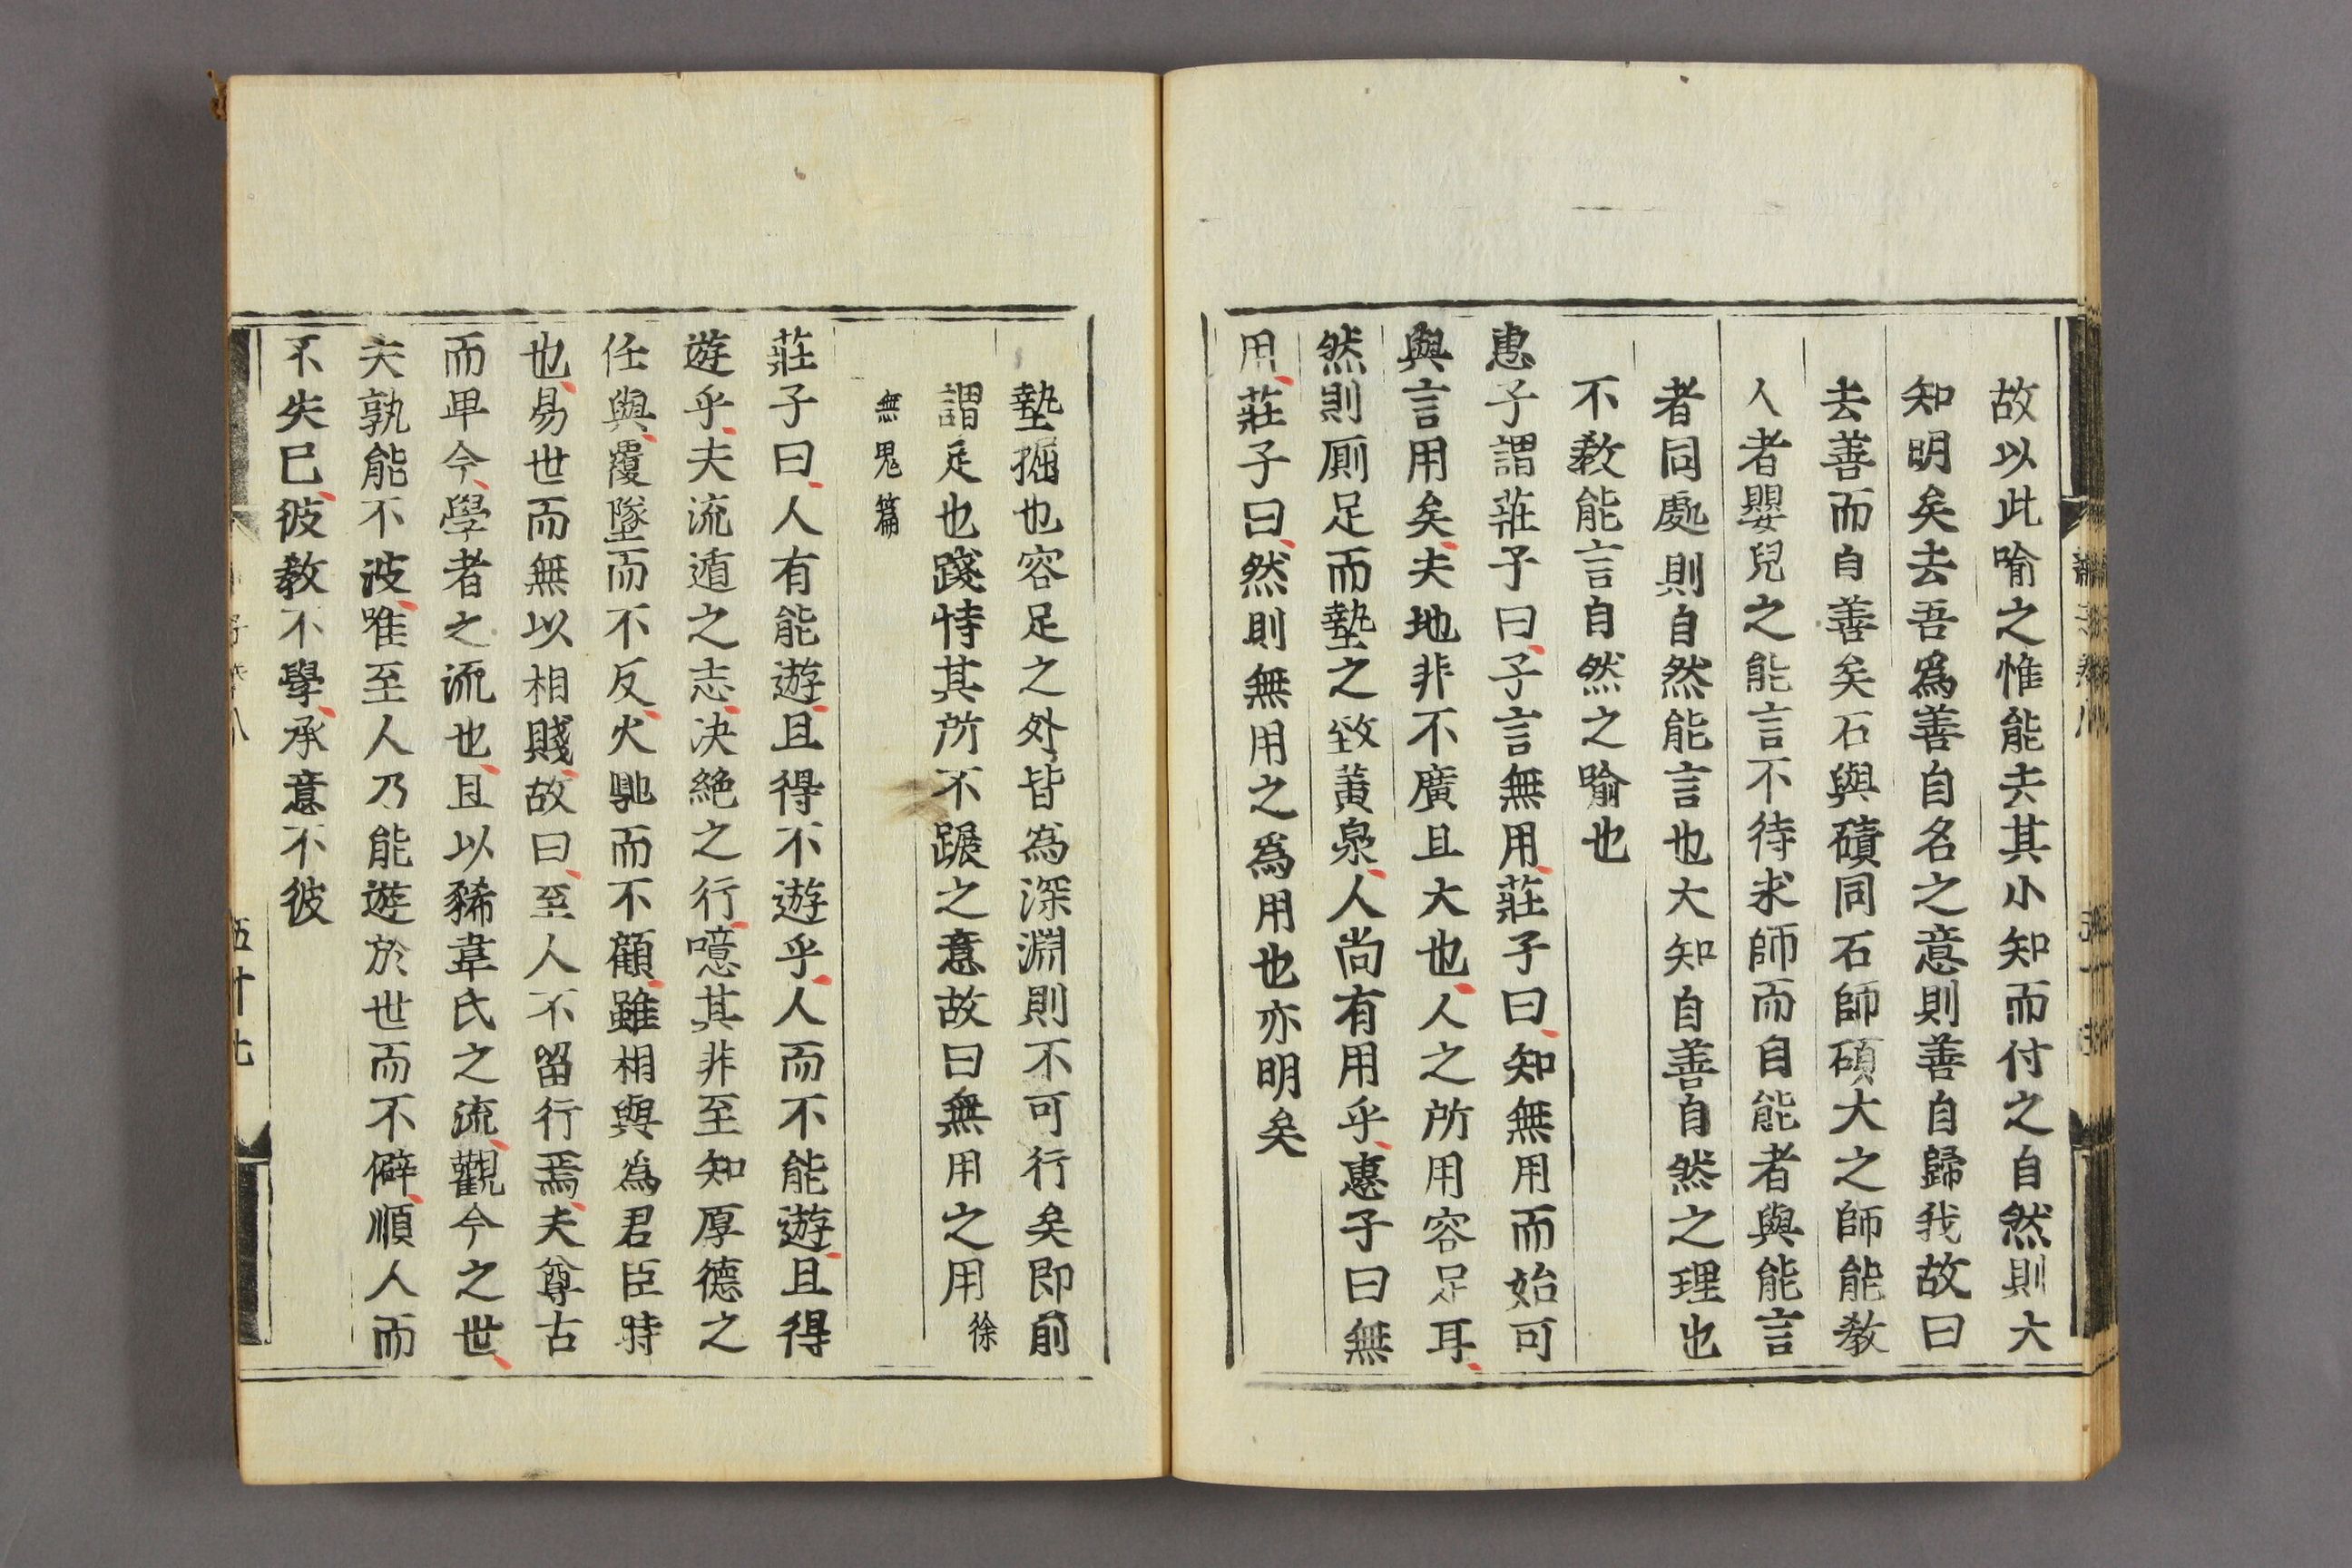 故以此喻之惟能去其小知而付之自然則大
知明矣去吾爲善自名之意則善自歸我故曰
去善而自善矣石與磧同石師碩大之師能教
人者嬰兒之能言不待求師而自能者與能言
者同處則自然能言也大知自善自然之理也
不教能言自然之喻也
惠子謂莊子曰子言無用莊子曰知無用而始可
與言用矣夫地非不廣且大也人之所用容足耳
然則厠足而墊之致黃泉人尚有用乎惠子曰無
用莊子曰然則無用之爲用也亦明矣
墊掘也容足之外皆為深淵則不可行矣即前
謂足也踐恃其所不蹍之意故曰無用之用徐
無鬼篇
莊子曰人有能遊且得不遊乎人而不能遊且得
遊乎夫流遁之志决絶之行噫其非至知厚德之
任與覆墜而不反火馳而不顧雖相與為君臣時
也易世而無以相賤故曰至人不留行焉夫尊古
而卑今學者之流也且以豨韋氏之流觀今之世
夫孰能不波唯至人乃能遊於世而不僻順人而
不失已彼教不學承意不彼
五十七